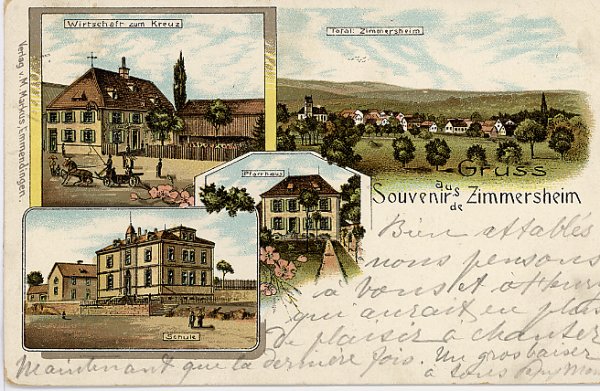 Wirtschaft zum Kreuz
Total: Zimmersheim
Verlag v. M. Markus, Emmendingen.
Gruss
aus
Souvenir de Zimmersheim
Pfarrhaus
Schule
Bien attablés
nous pensons
à vous et
qui aurait eu plus
de plaisir à chanter
Maintenant que la dernière fois. Un gros baiser
à tous